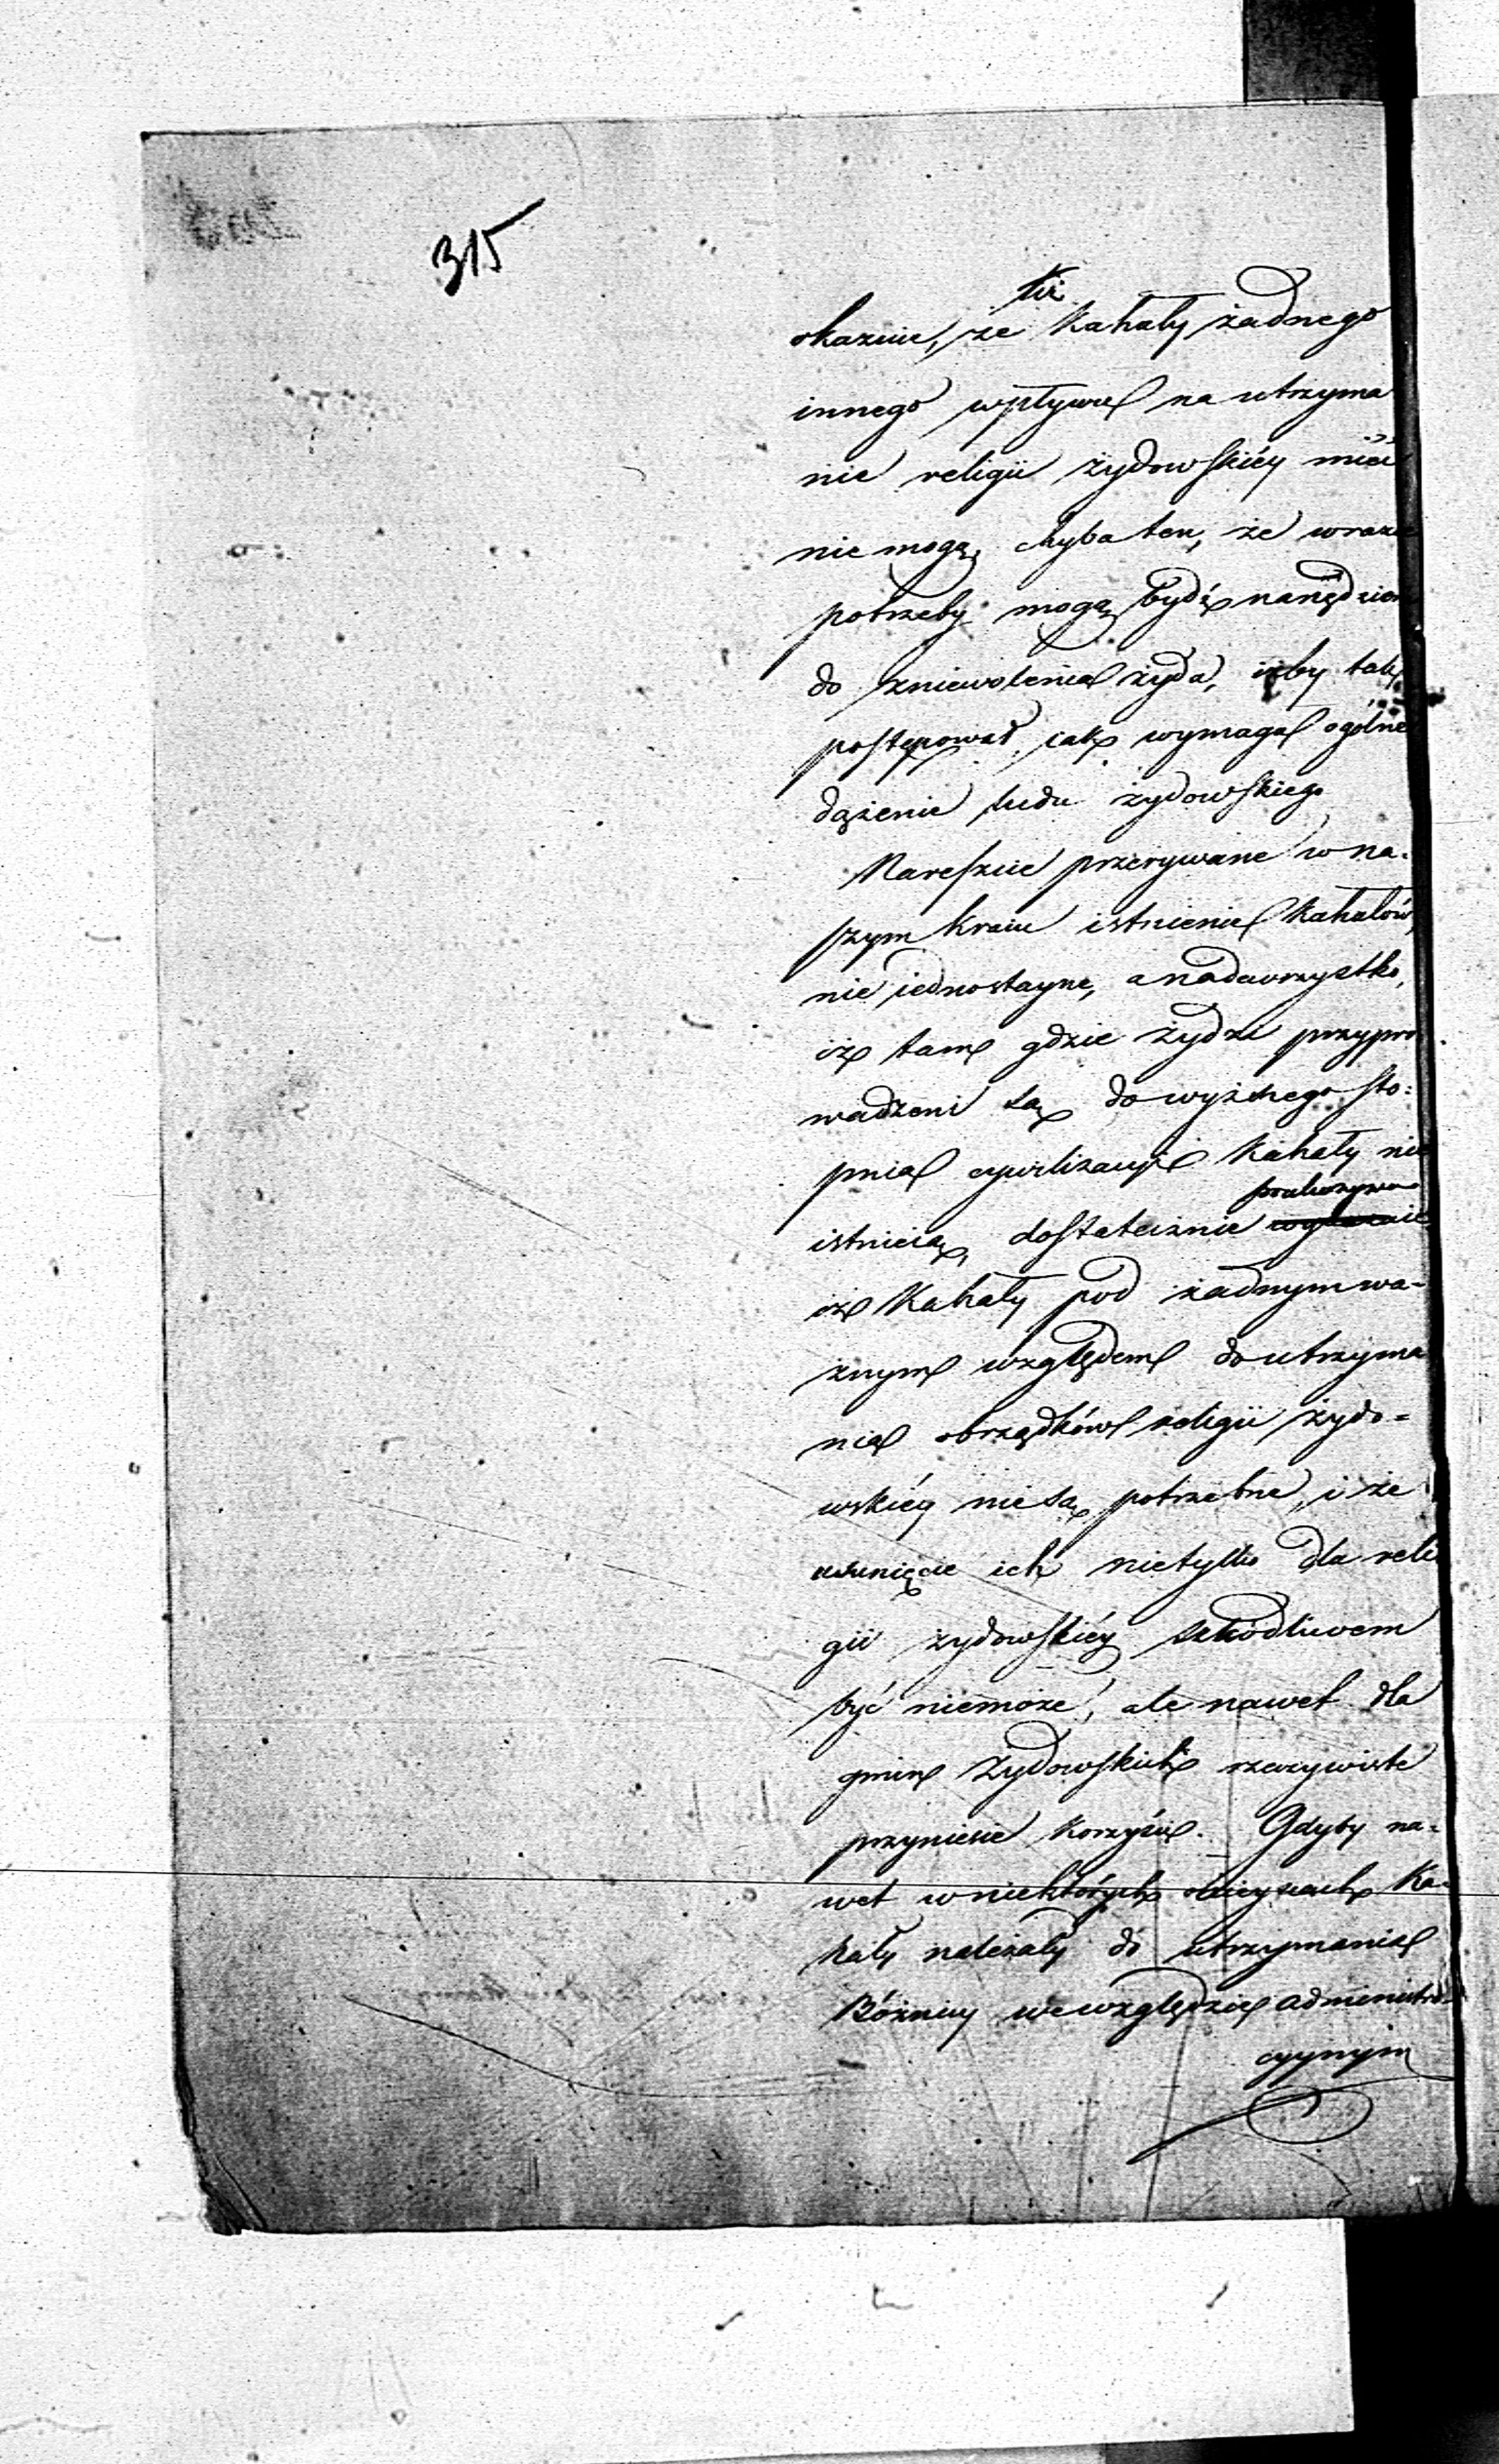 315
tu
okazuie, że Kahały żadnego
innego wpływu na utrzyma
nie religii żydowskiéy mieć
nie mogą, chyba ten, że w razie
potrzeby mogą bydź narzędziem
do zniewolenia żyda, iżby tak
postępował, iak wymaga ogólne
dążenie ludu żydowskiego
Nareszcie przerywane w na-
szym kraiu istnienie Kahałów,
nie iednostayne, a nadewszystko,
iż tam gdzie żydzi przypro
wadzeni są do wyższego sto-
pnia cywilizacyi Kahały nie
istnieią, dostatecznie
iż Kahały pod żadnym wa-
żnym względem do utrzyma
nia obrządków religii żydo-
wskiéy nie są potrzebne, i że
usunięcie ich nietylko dla reli
gii żydowskiéy szkodliwem
być niemoże, ale nawet dla
gmin żydowskich rzeczywiste
przyniesie korzyści. Gdyby na-
wet w niektórych mieyscach Ka-
hały należały do utrzymania
Bóżnicy we względzie administra-
cyynym